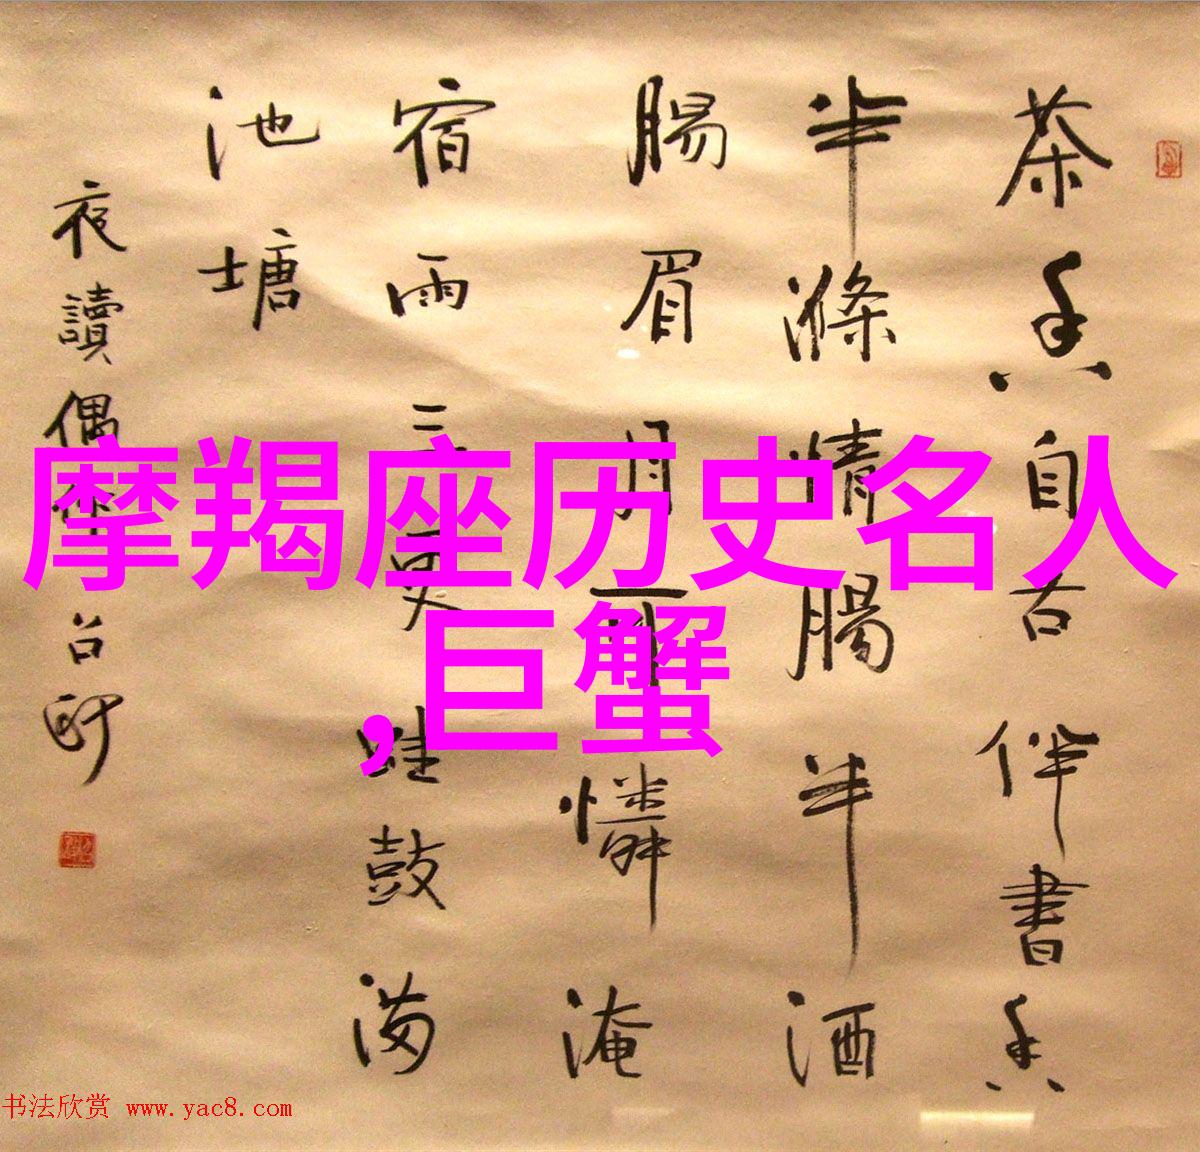 茶香自古伴書香
半滌情腸半酒
腸眉月一憐淹
宿雨三更蛙鼓满
池塘
夜讀偶作
摩羯座历史名人
,巨蟹
书法欣赏 www.yac8.com